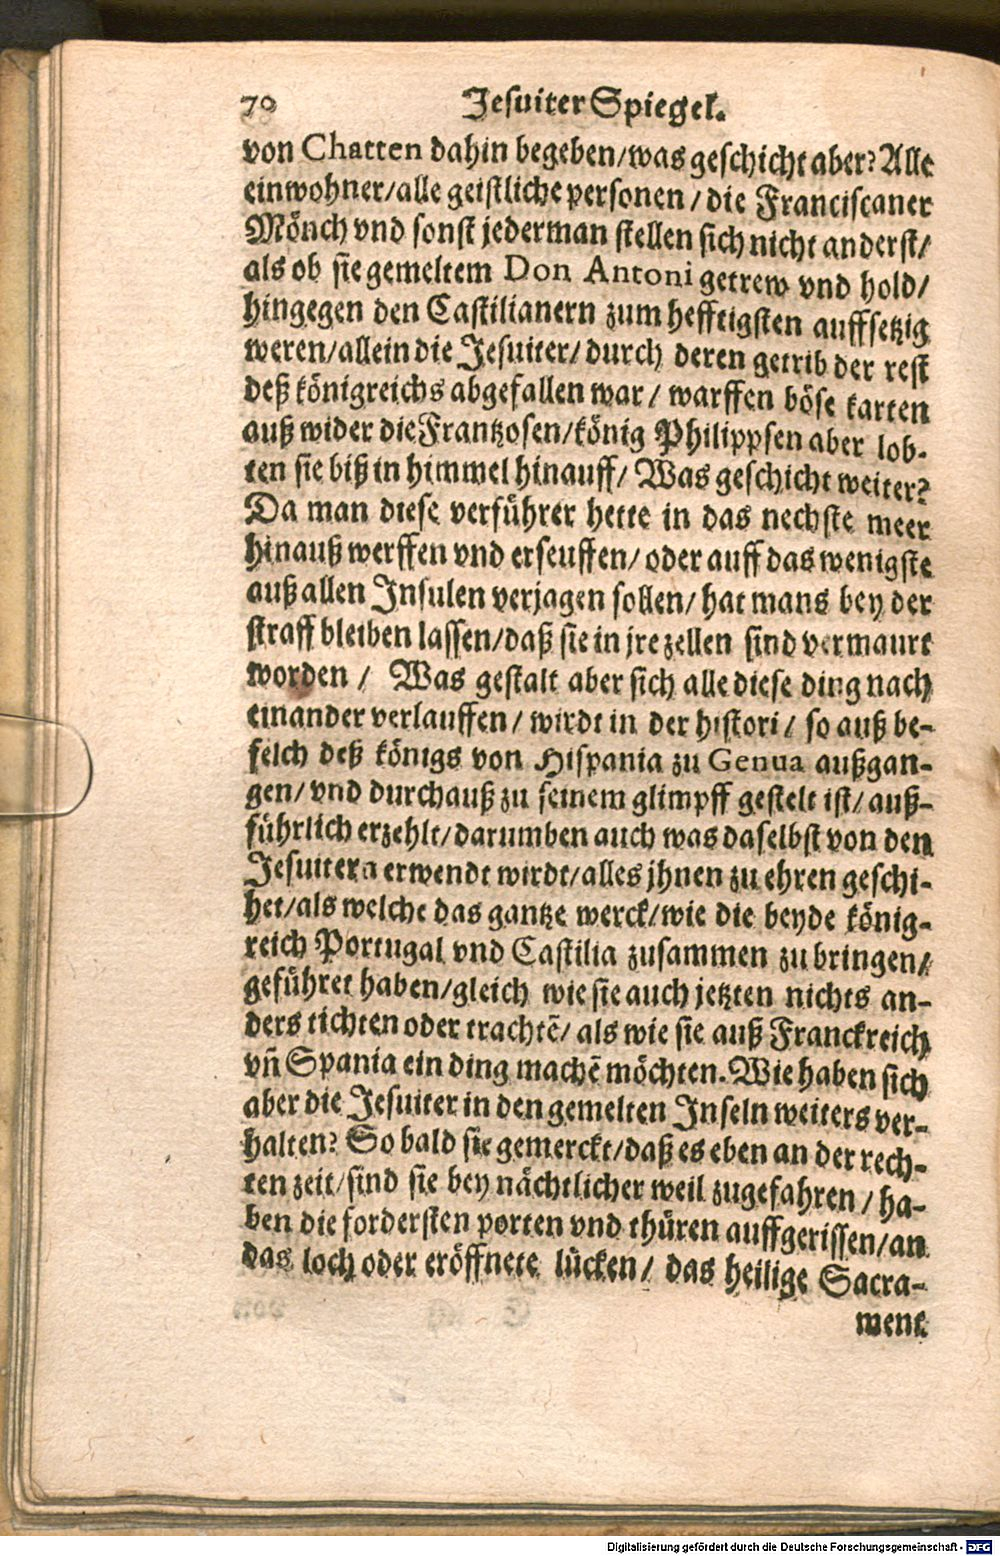 70 Jesuiter Spiegel.
von Chatten dahin begeben/was geschicht aber? Alle
einwohner/alle geistliche personen/die Franciscaner
Mönch vnd sonst jederman stellen sich nicht anderst/
als ob sie gemeltem Don Antoni getrew vnd hold/
hingegen den Castilianern zum hefftigsten auffsetzig
weren/allein die Jesuiter/durch deren getrib der rest
deß königreichs abgefallen war/warffen böse karten
auß wider die Frantzosen/könig Philippsen aber lob-
ten sie biß in himmel hinauff/Was geschicht weiter?
Da man diese verführer hette in das nechste meer
hinauß werffen vnd erseuffen/oder auff das wenigste
auß allen Insulen verjagen sollen/hat mans bey der
straff bleiben lassen/daß sie in jre zellen sind vermaurt
worden/ Was gestalt aber sich alle diese ding nach
einander verlauffen/wirdt in der histori/so auß be-
felch deß königs von Hispania zu Genua außgan-
gen/vnd durchauß zu seinem glimpff gestelt ist/auß-
führlich erzehlt/darumben auch was daselbst von den
Jesuitern erwendt wirdt/alles jhnen zu ehren geschi-
het/als welche das gantze werck/wie die beyde könig-
reich Portugal vnd Castilia zusammen zu bringen/
geführet haben/gleich wie sie auch jetzten nichts an-
ders tichten oder trachtē/als wie sie auß Franckreich
vñ Spania ein ding machē möchten. Wie haben sich
aber die Jesuiter in den gemelten Inseln weiters ver-
halten? So bald sie gemerckt/daß es eben an der rech-
ten zeit/sind sie bey nächtlicher weil zugefahren/ha-
ben die fordersten porten vnd thüren auffgerissen/an
das loch oder eröffnete lücken/das heilige Sacra-
ment
Digitalisierung gefördert durch die Deutsche Forschungsgemeinschaft - DFG